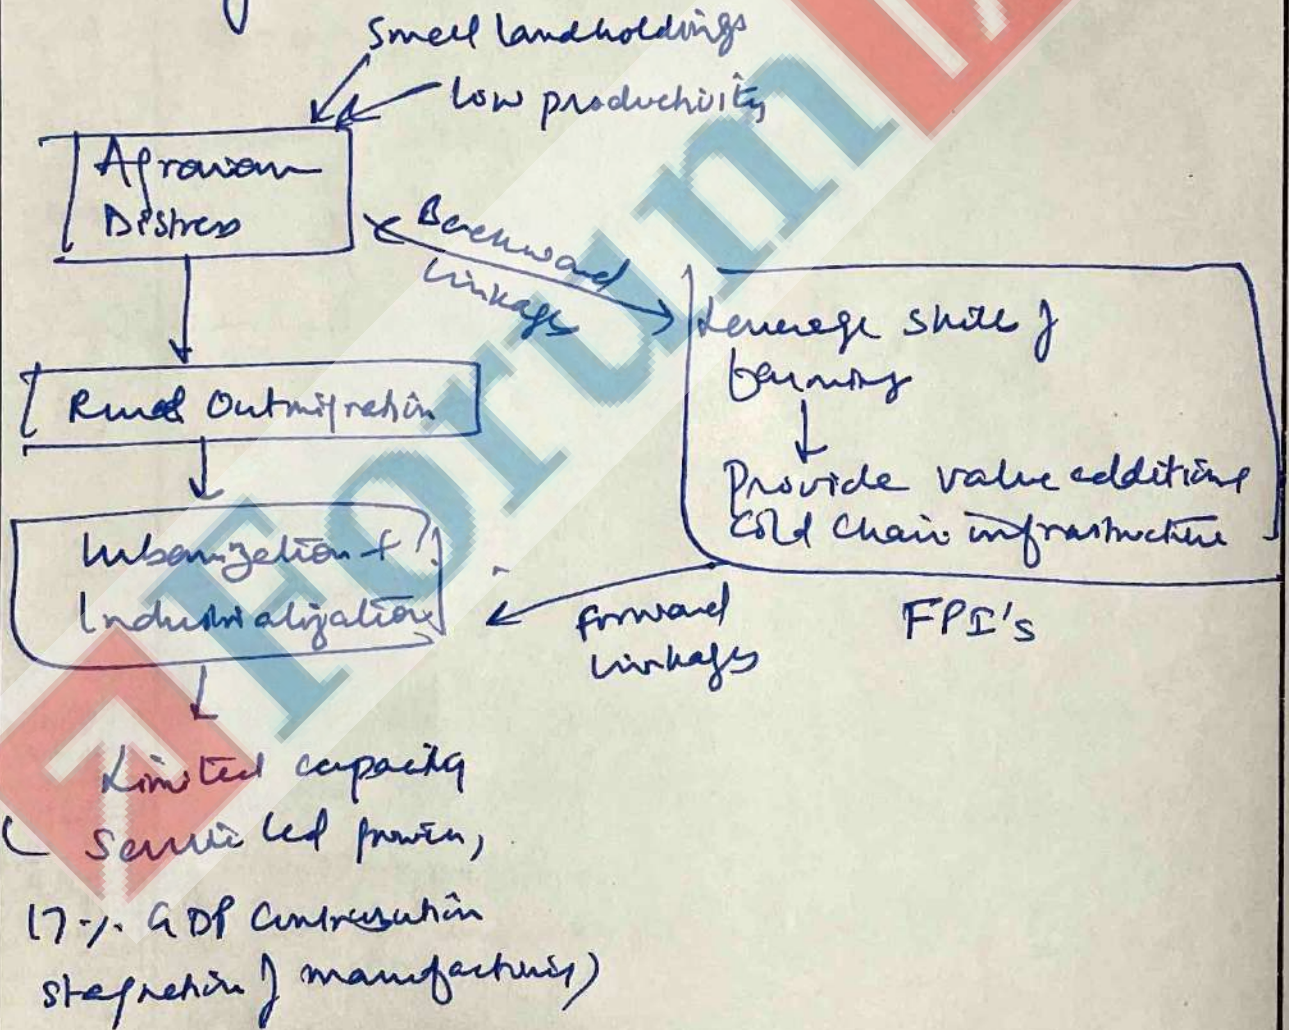 Small landholdings
low productivity
Agrarian
Distress
Backward
linkage
Leverage skill of
farming
Provide value addition
Cold Chain infrastructure
FPI's
Rural Outmigration
Urbanization +
Industrialization
forward
linkages
Limited capacity
( Service led growth,
17% GDP Contribution
stagnation of manufacturing)
Forum